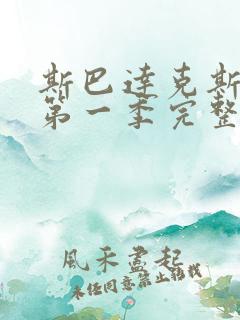 斯巴达克斯
第一季完整
風禾盡起
未经同意禁止转载